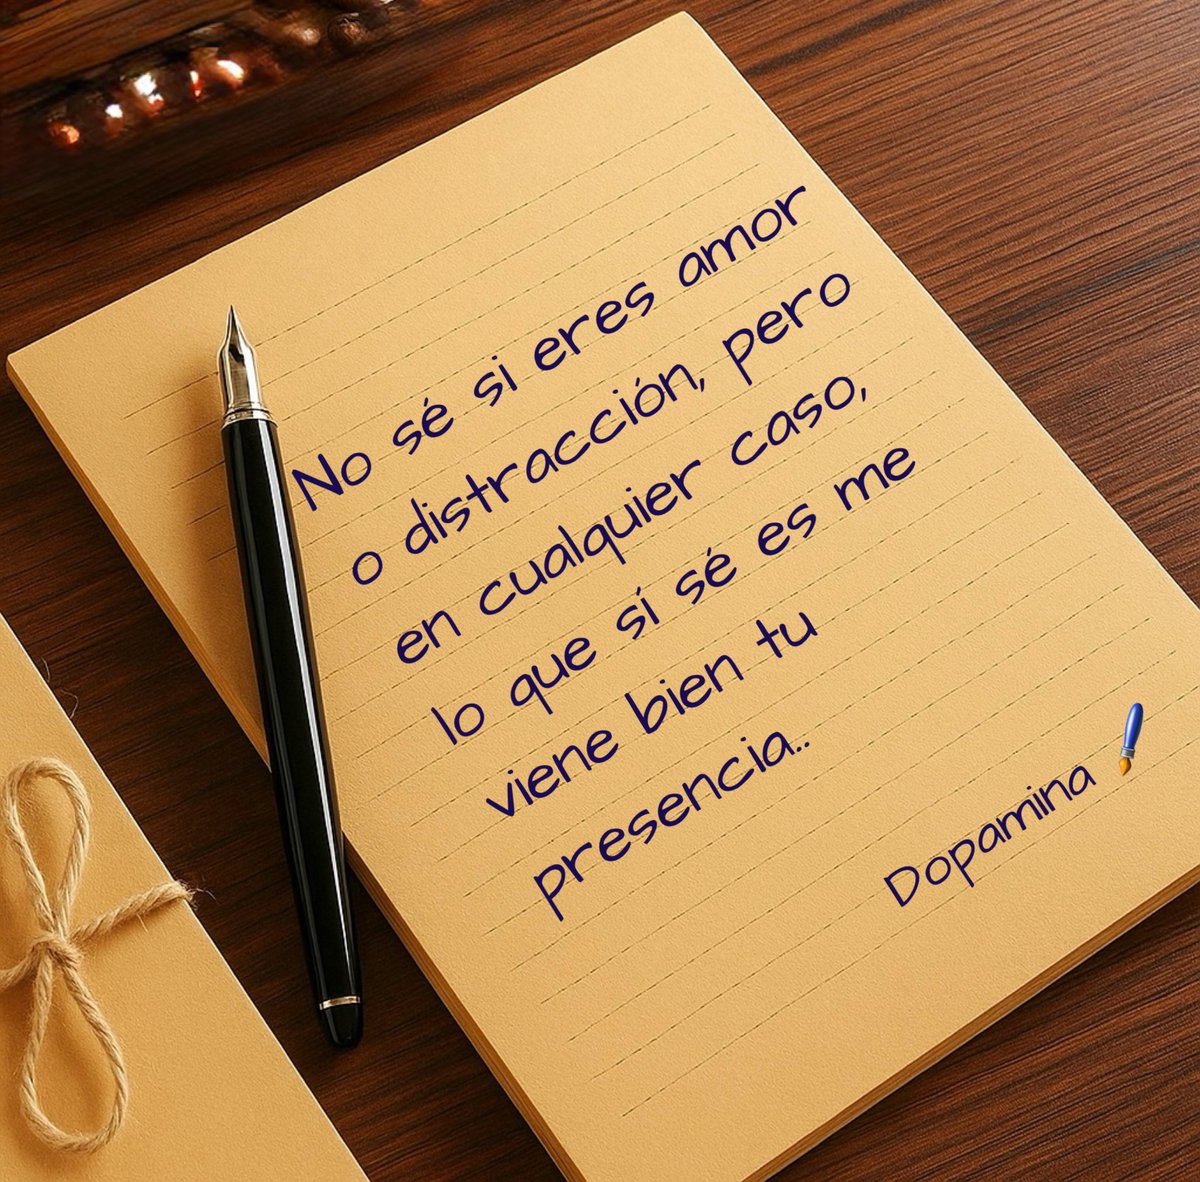 No sé si eres amor
o distracción, pero
en cualquier caso,
lo que sí sé es me
viene bien tu
presencia..
Dopamina 🖌️